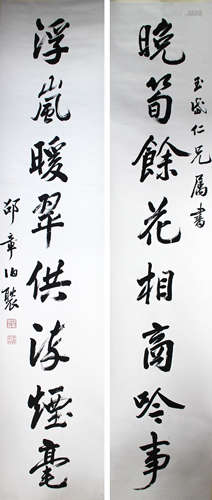 玉盛仁兄属書
晚筍餘花相商吟事
浮嵐暖翠供染煙毫
邵章伯褧